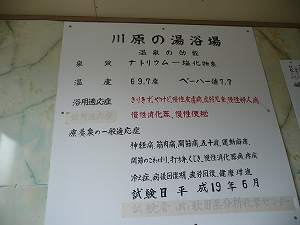 川原の湯浴場
温泉の効能
泉質 ナトリウム－塩化物泉
温度 69.7度 ペーハー値7.7
浴用適応症 きりきず、やけど、慢性皮膚病、虚弱児童、慢性婦人病
慢性消化器、慢性便秘
療養泉の一般適応症
神経痛、筋肉痛、関節痛、五十肩、運動麻痺、
関節のこわばり、打ち身、くじき、慢性消化器病、痔疾
冷え症、病後回復期、疲労回復、健康増進
試験日 平成19年6月
試験者 秋田県分析化学センター